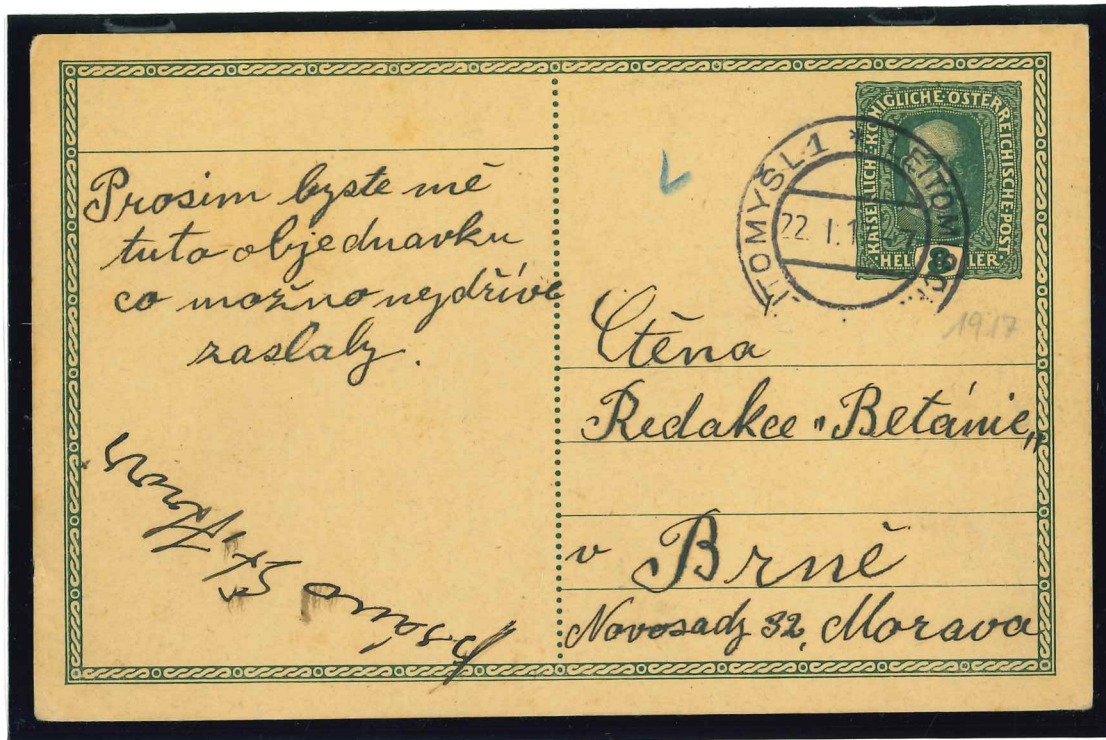 Prosim byste mě
tuto objednavku
co možno nejdříve
zaslaly.
KAISERLICHE KÖNIGLICHE ÖSTERREICHISCHE POST
HELLER
8
ITOMYŠL 1 * LEITOM
22. I. 1
1917
Ctěna
Redakce "Betánie"
v Brně
Novosady 32, Morava